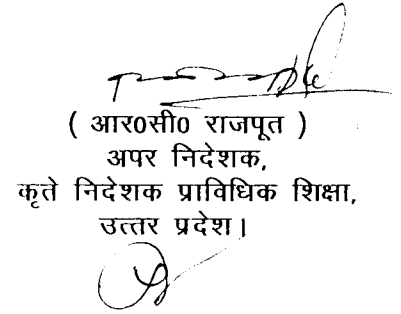 ( आर0सी0 राजपूत )
अपर निदेशक,
कृते निदेशक प्राविधिक शिक्षा,
उत्तर प्रदेश।